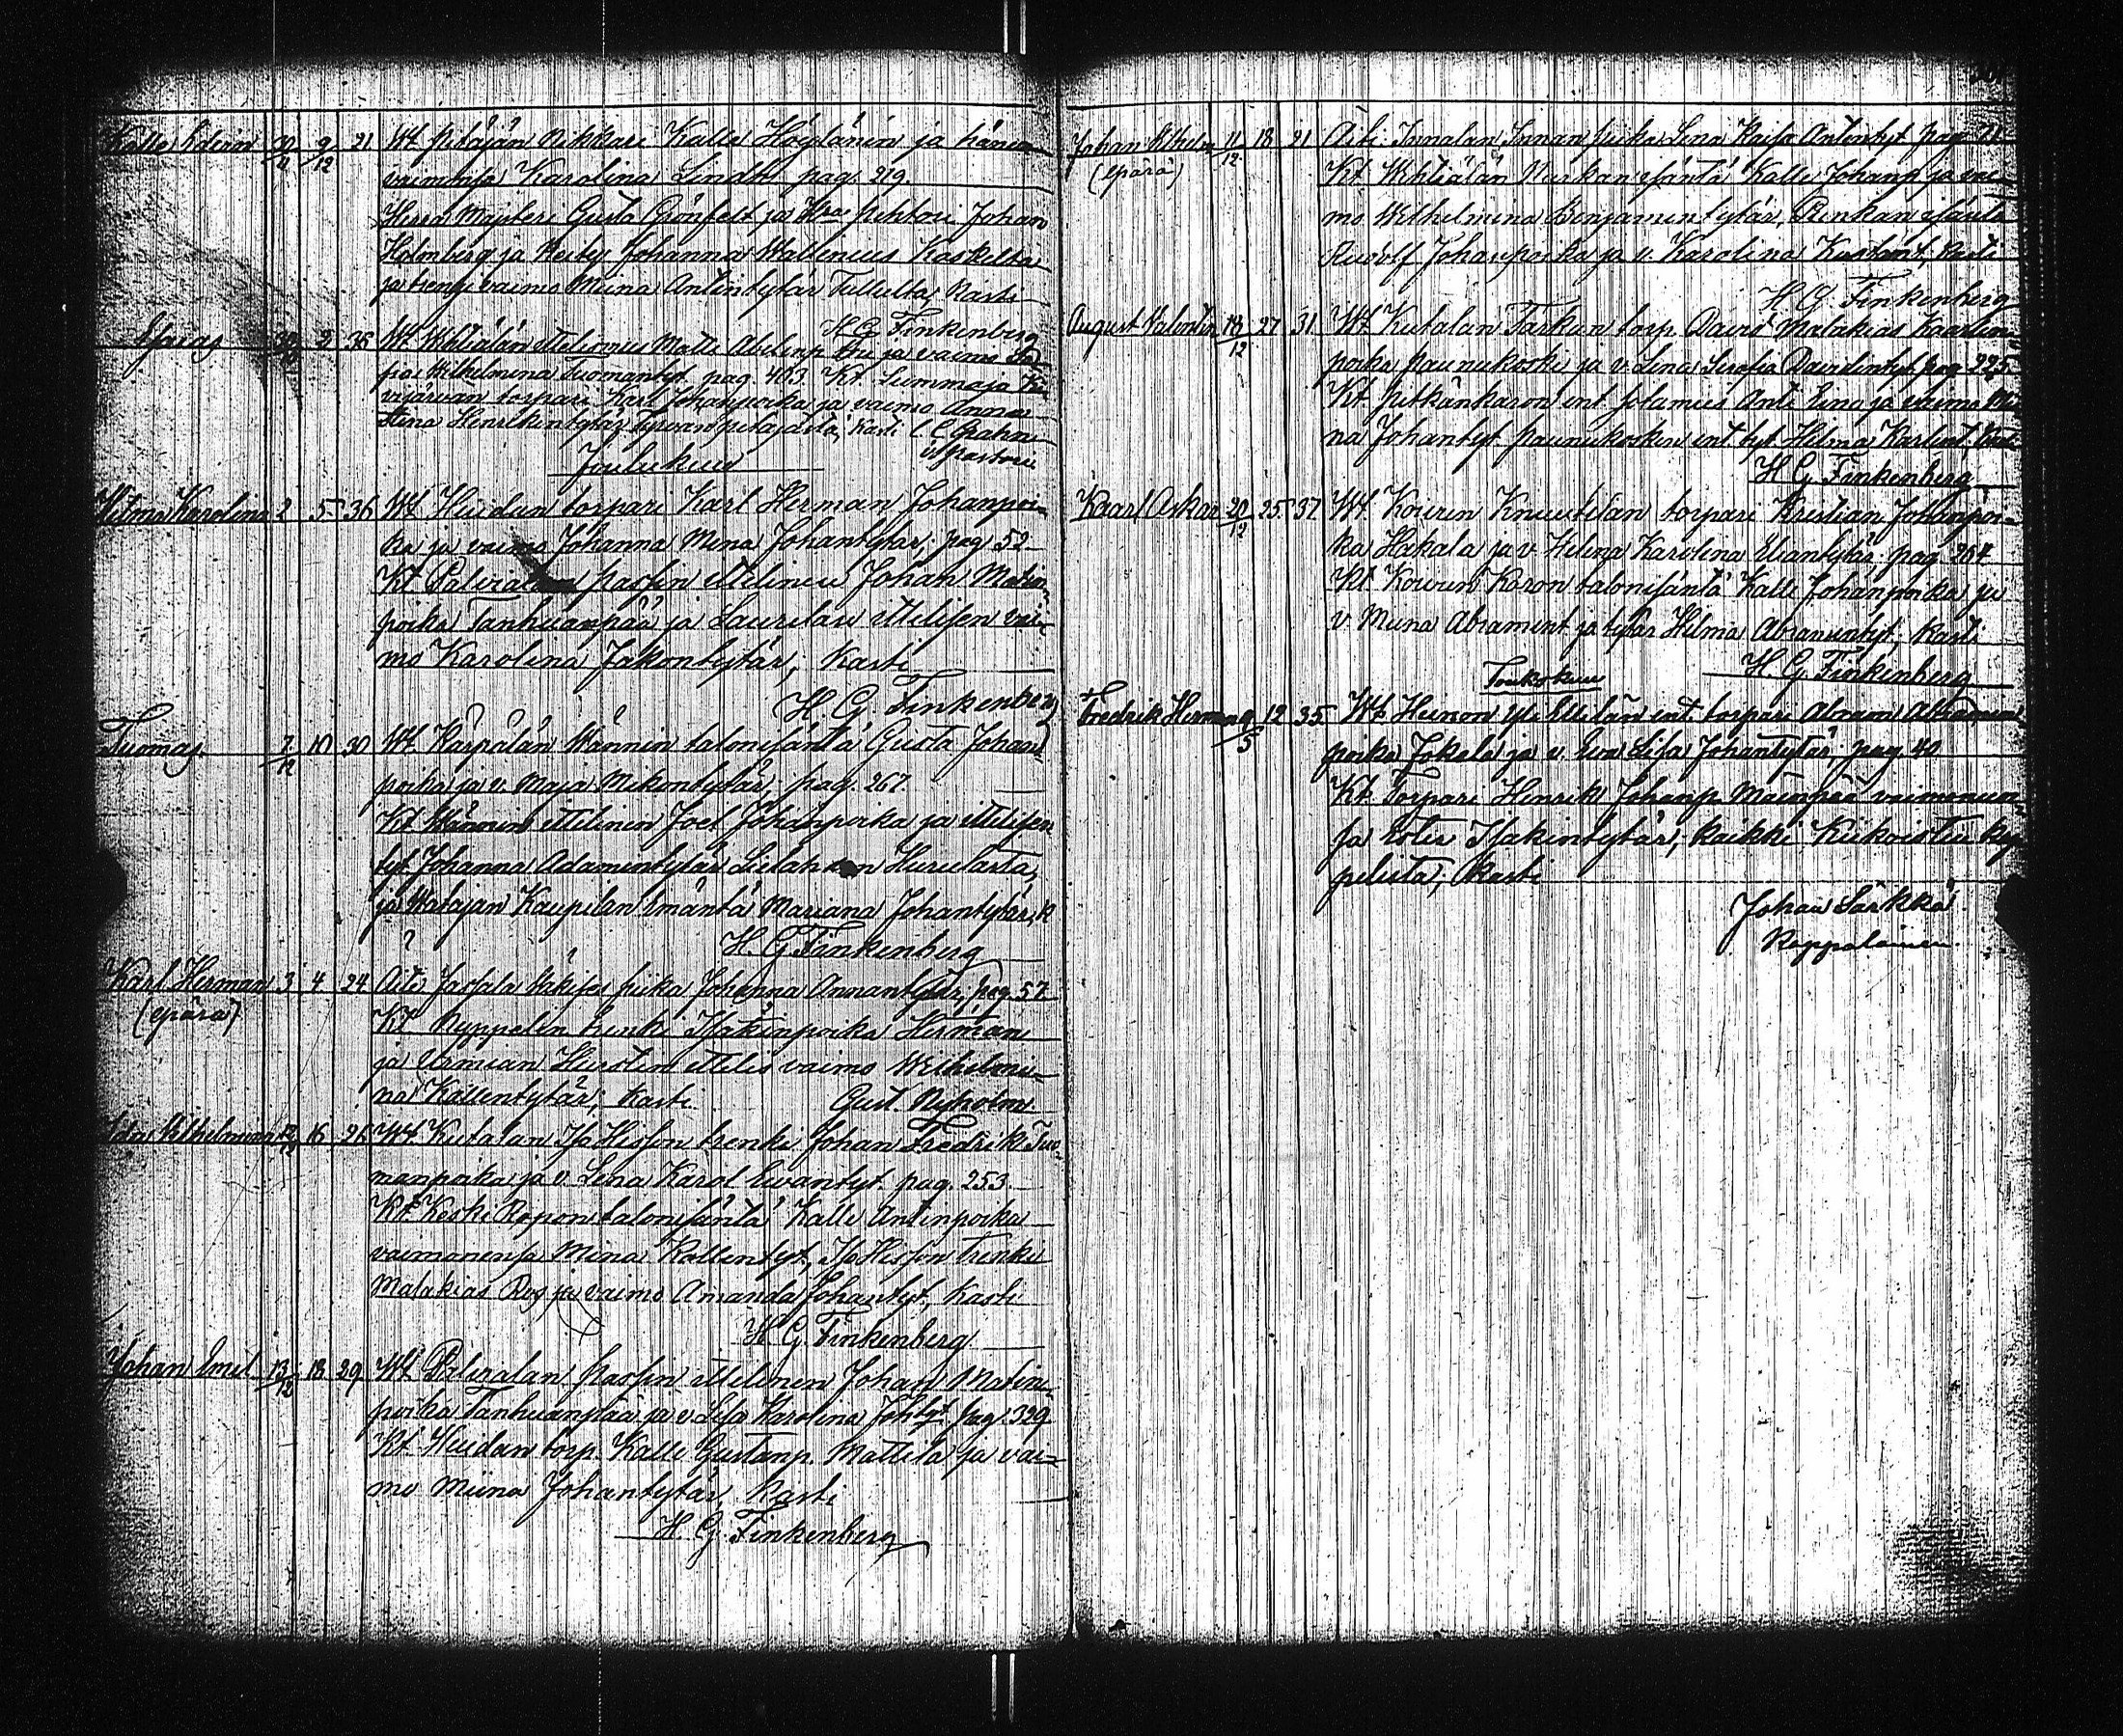 Kalle Edvin 30/11 9/12 21 Wt. Pitäjän Nikkari Kalle Höglanin ja hänen
vaimonsa Karolina Lindh pag. 219.
Herra Majsteri Gusta Grönfelt ja Hra Pehtori Johan
Holmberg ja Neitsy Johanna Wallenius Koskelta
ja rengi vaimo Miina Antintytär Tullelta, Kasti
H G Finkenberg
Esaias 30 2 36 Wt. Wihtiälän ittelismies Matts Abelinp. ja vaimo So
fia Wilhelmina Tuomantyt. pag. 403. Kt. Summaja Kii
vijärvän torpari Karl Johanpoika ja vaimo Anna
Stina Henrikintytär Tyrvän pitäjästä, Kasti C. E. Grahn
v. pastori
Joulukuu
Hilma Karolina 2 5 36 Wt. Huidan torpari Karl Herman Johanpoi-
ka ja vaimo Johanna Mina Johantytär, pag 52
Kt. Palviala Passin ittelinen Johan Matin
poika Tanhuanpää ja Laurilan ittelisen vai-
mo Karolina Jakontytär, Kasti
H. G. Finkenberg
Tuomas 7/12 10 30 Wt. Kärpälän Wännin talonisäntä Gusta Johan
poika ja v. Maja Mikontytär, pag. 267.
Kt. Wännin ittelinen Joel Johanpoika ja ittelisen
tyt. Johanna Adamintytär
ja Watajan Kaupilan Emäntä Mariana Johantytär, K
H. G Finkenberg
Karl Herman 3 4 24 Äiti Jaafala Wäkisen piika Johanna Annantytär, pag. 57
(epärä) Kt. Nyppelin renki Isakinpoika Herman
ja Aamian Heustin ittelis vaimo Wilhelmi-
na Kallentytär, Kasti. Gust. Nyholm.
Ida Wilhelmina 12/12 16 26 Wt. Kutalan Iso Hissan trenki Johan Fredrik Tuo-
manpoika ja v. Lena Karol. Ewantyt. pag. 253.
Kt. Keski Rapon talonisäntä Kalle Antinpoika
vaimonensa Miina Kallentyt., Iso Hissan Trenki
Malakias Ros ja vaimo Amanda Johantyt., Kasti
H. G. Finkenberg
Johan Emil 13/12 18 29 Wt. Palvialan Passin ittelinen Johan Matin-
poika Tanhuanpää ja v. Lisa Karolina Johtyt. pag. 329
Kt. Huidan torp. Kalle Gustanp. Mattila ja vai-
mo Miina Johantytär, Kasti
H. G. Finkenberg
Johan Wilhelm 11/12 18 21 Äiti: Innalan Innan piika Lena Kaisa Antintyt. pag. 71
(epärä) Kt. Wihtiälän Uuskan isäntä Kalle Johanp. ja vai-
mo Wilhelmina Benjamintytär, Rinkan isäntä
Rudolf Johanpoika ja v. Karolina Kustant., Kasti
H G. Finkenberg
August Valentin 18/12 27 31 Wt. Kutalan Tarkun torp. David Malakias Kaarlen-
poika Paunukoski ja v. Lina Serafia Davidintyt. pag. 225
Kt. Pitkänkaron ent. sotamies Anti Eina ja vaimo Mii
na Johantyt. Paunukosken ent. tyt. Hilma Karlent., Kasti
H G. Finkenberg
Kaarl Oskar 20/12 25 37 Wt. Koiren Knuutilan torpari Kristian Johanpoi-
ka Hakala ja v. Helena Karolina Eliantytär. pag. 264
Kt. Kouvun Karon talonisäntä Kalle Johanpoika ja
v. Miina Abramint. ja tytär Hilma Abramintyt., Kasti
H. G. Finkenberg
Toukokuu
Fredrik Herman 9/5 12 35 Wt. Heinon Yli Ellilän ent. torpari Abram Abramin
poika Jokela ja v. Eva Lisa Johantytär, pag. 40
Kt. Torpari Henrik Johanp. Mäinpää vaimonuon-
sa Lotta Isakintytär, kaikki Kiikoisten kap
pelista, Kasti
Johan Särkkä
Kappalainen